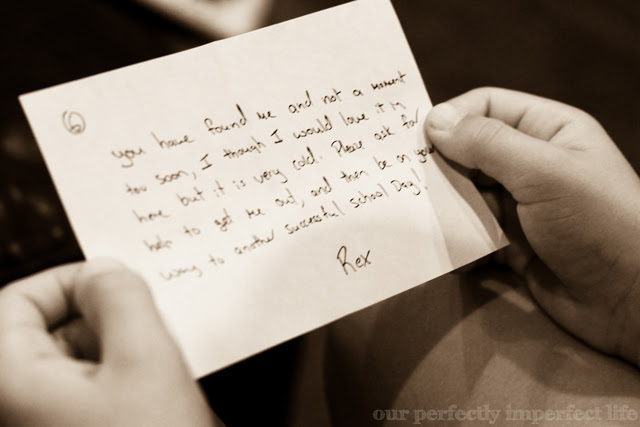 6
you have found me and not a moment
too soon, I though I would love it in
here but it is very cold. Please ask for
help to get me out, and then be on your
way to another successful school Day!
Rex
our perfectly imperfect life